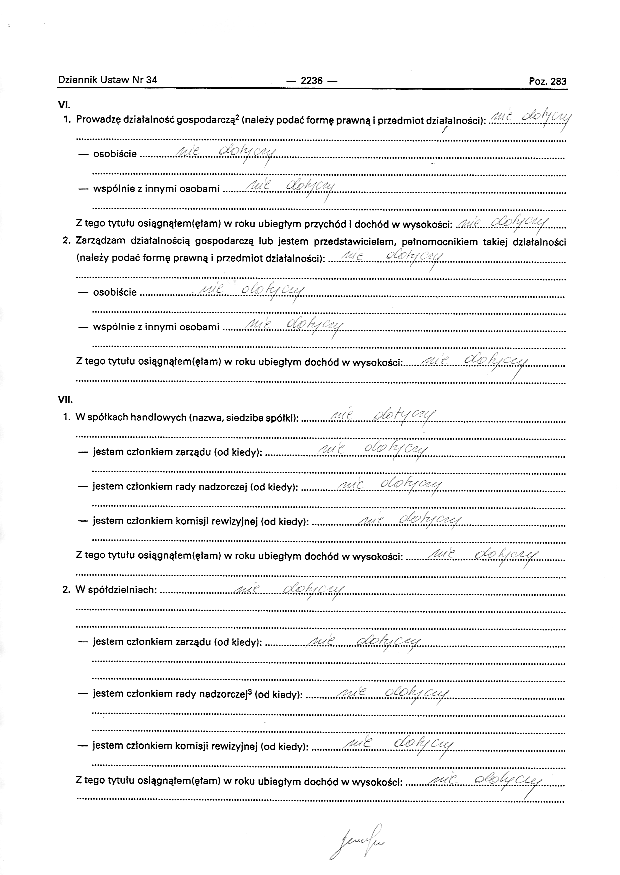 Dziennik Ustaw Nr 34 — 2236 — Poz. 283
VI.
1. Prowadzę działalność gospodarczą² (należy podać formę prawną i przedmiot działalności): nie dotyczy
— osobiście nie dotyczy
— wspólnie z innymi osobami nie dotyczy
Z tego tytułu osiągnąłem(ęłam) w roku ubiegłym przychód i dochód w wysokości: nie dotyczy
2. Zarządzam działalnością gospodarczą lub jestem przedstawicielem, pełnomocnikiem takiej działalności
(należy podać formę prawną i przedmiot działalności): nie dotyczy
— osobiście nie dotyczy
— wspólnie z innymi osobami nie dotyczy
Z tego tytułu osiągnąłem(ęłam) w roku ubiegłym dochód w wysokości: nie dotyczy
VII.
1. W spółkach handlowych (nazwa, siedziba spółki): nie dotyczy
— jestem członkiem zarządu (od kiedy): nie dotyczy
— jestem członkiem rady nadzorczej (od kiedy): nie dotyczy
— jestem członkiem komisji rewizyjnej (od kiedy): nie dotyczy
Z tego tytułu osiągnąłem(ęłam) w roku ubiegłym dochód w wysokości: nie dotyczy
2. W spółdzielniach: nie dotyczy
— jestem członkiem zarządu (od kiedy): nie dotyczy
— jestem członkiem rady nadzorczej³ (od kiedy): nie dotyczy
— jestem członkiem komisji rewizyjnej (od kiedy): nie dotyczy
Z tego tytułu osiągnąłem(ęłam) w roku ubiegłym dochód w wysokości: nie dotyczy